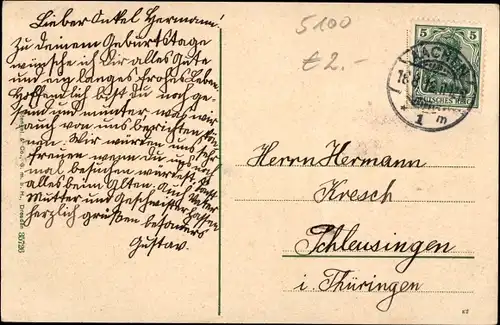 Lieber Onkel Hermann!
Zu deinem Geburtstage
wünsche ich Dir alles Gute
und ein langes frohes Leben.
Hoffendlich bist du noch ge-
sund und munter was wir
auch von uns berichten kön-
nen. Wir würden uns sehr
freuen wenn du uns ein-
mal besuchen werdest, sonst
alles beim Alten. Auch Vater
Mutter und Geschwister lassen
herzlich grüßen besonders
Gustav.
5100
£ 2.-
5 5
AACHEN
DEUTSCHES REICH
1 m
Herrn Hermann
Kresch
Schleusingen
i. Thüringen
K2